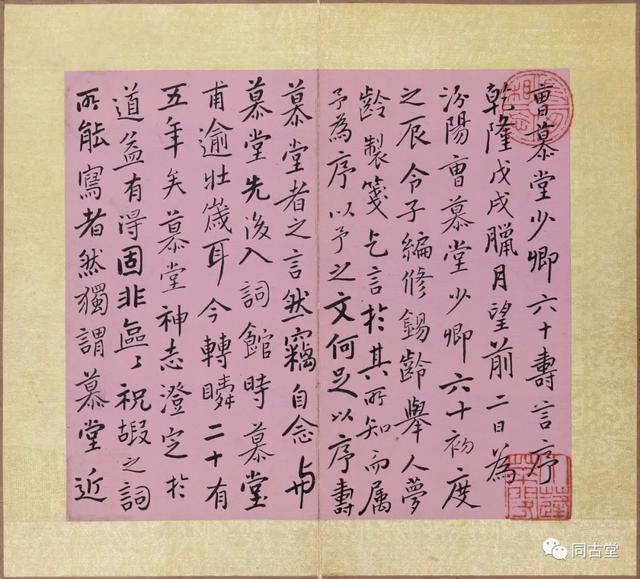 曹慕堂少卿六十壽言序
乾隆戊戌臘月望前二日為
汾陽曹慕堂少卿六十初度
之辰令子編修錫齡舉人夢
齡製箋乞言於其所知而属
予為序以予之文何足以序壽
慕堂者之言然竊自念与
慕堂先後入詞館時慕堂
甫逾壯歲耳今轉瞬二十有
五年矣慕堂神志澄定於
道益有淂固非區〻祝嘏之詞
所能寫者然獨謂慕堂近
同古堂